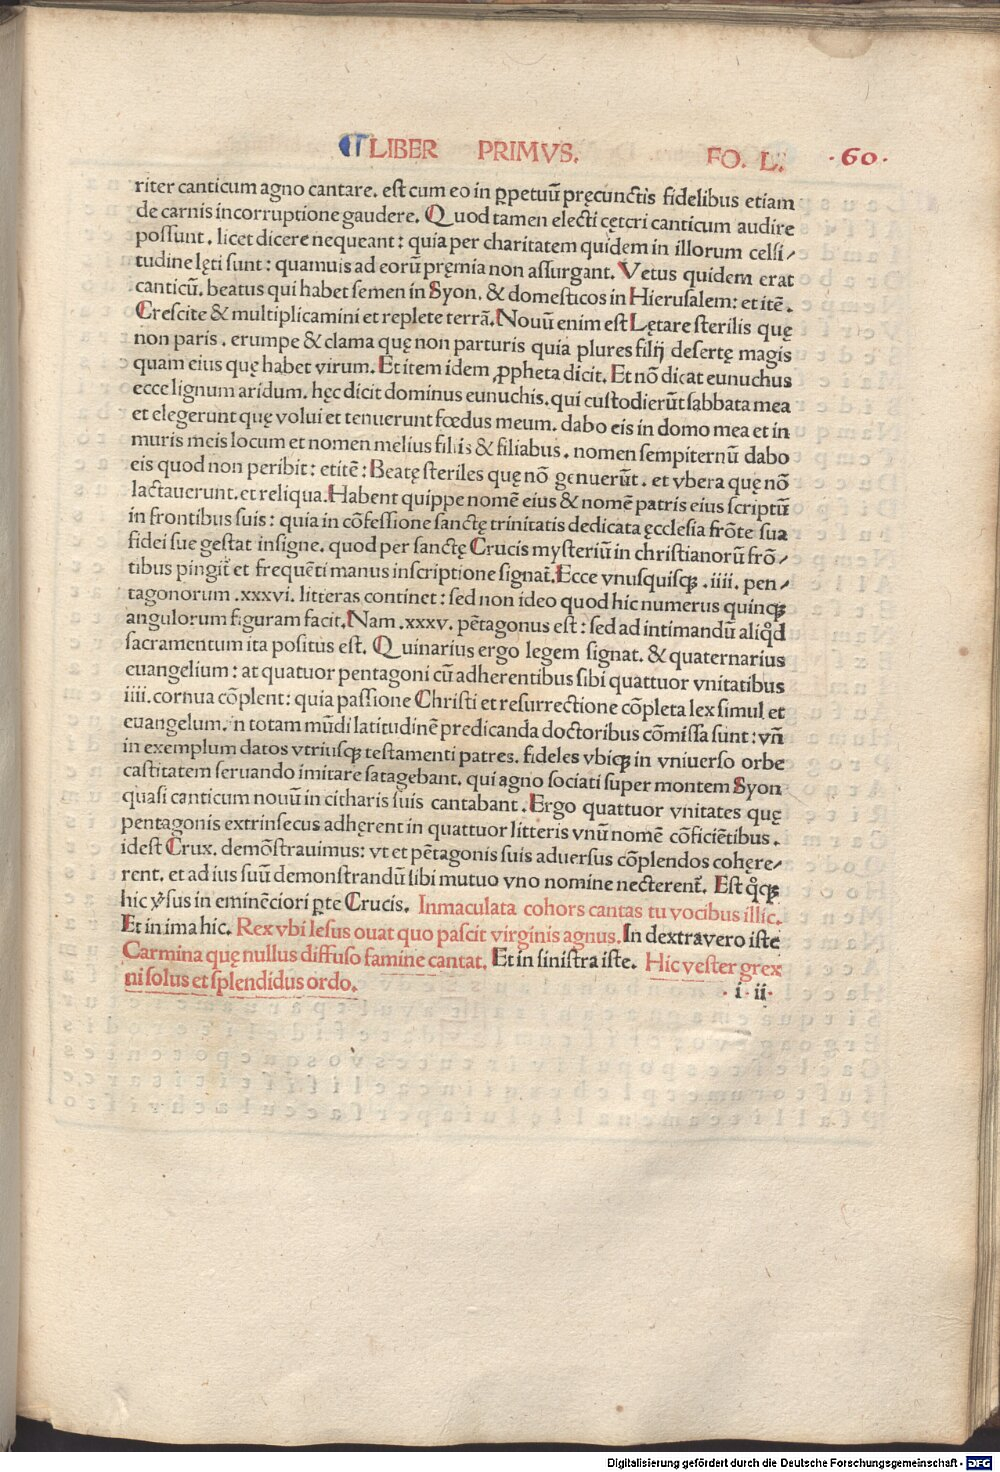 LIBER PRIMVS. FO. L. ·60·
riter canticum agno cantare. est cum eo in ꝑpetuũ pręcunctis fidelibus etiam
de carnis incorruptione gaudere. Quod tamen electi cętcri canticum audire
possunt . licet dicere nequeant : quia per charitatem quidem in illorum celsi/
tudine lęti sunt : quamuis ad eorũ pręmia non assurgant. Vetus quidem erat
canticũ. beatus qui habet semen in Syon. & domesticos in Hierusalem: et itẽ .
Crescite & multiplicamini et replete terrã. Nouũ enim est Lętare sterilis quę
non paris . erumpe & clama quę non parturis quia plures filij desertę magis
quam eius quę habet virum. Et item idem ꝓpheta dicit. Et nõ dicat eunuchus
ecce lignum aridum. hęc dicit dominus eunuchis. qui custodierũt sabbata mea
et elegerunt quę volui et tenuerunt fœdus meum. dabo eis in domo mea et in
muris meis locum et nomen melius filiis & filiabus . nomen sempiternũ dabo
eis quod non peribit : et itẽ : Beatę steriles quę nõ genuerũt . et vbera quę nõ
lactauerunt. et reliqua. Habent quippe nomẽ eius & nomẽ patris eius scriptũ
in frontibus suis : quia in cõfessione sanctę trinitatis dedicata ęcclesia frõte sua
fidei sue gestat insigne. quod per sanctę Crucis mysteriũ in christianorũ frõ/
tibus pingit̃ et frequẽti manus inscriptione signat̃. Ecce vnusquisqꝫ .iiii. pen/
tagonorum .xxxvi. litteras continet : sed non ideo quod hic numerus quinqꝫ
angulorum figuram facit. Nam .xxxv. pẽtagonus est : sed ad intimandũ aliqͦd
sacramentum ita positus est. Quinarius ergo legem signat. & quaternarius
euangelium : at quatuor pentagoni cũ adherentibus sibi quattuor vnitatibus
iiii. cornua cõplent : quia passione Christi et resurrectione cõpleta lex simul et
euangelum. in totam mũdi latitudinẽ predicanda doctoribus cõmissa sunt : vñ
in exemplum datos vtriusqꝫ testamenti patres. fideles vbiqꝫ in vniuerso orbe
castitatem seruando imitare satagebant. qui agno sociati super montem Syon
quasi canticum nouũ in citharis suis cantabant . Ergo quattuor vnitates quę
pentagonis extrinsecus adhęrent in quattuor litteris vnũ nomẽ cõficiẽtibus .
idest Crux. demõstrauimus: vt et pẽtagonis suis aduersus cõplendos cohęre/
rent. et ad ius suũ demonstrandũ sibi mutuo vno nomine necterent̃. Est qͦqꝫ
hic ꝟsus in eminẽciori ꝑte Crucis. Inmaculata cohors cantas tu vocibus illic.
Et in ima hic. Rex vbi Iesus ouat quo pascit virginis agnus. In dextra vero iste
Carmina quę nullus diffuso famine cantat. Et in sinistra iste. Hic vester grex
ni solus et splendidus ordo.
· i · ii ·
Digitalisierung gefördert durch die Deutsche Forschungsgemeinschaft - DFG